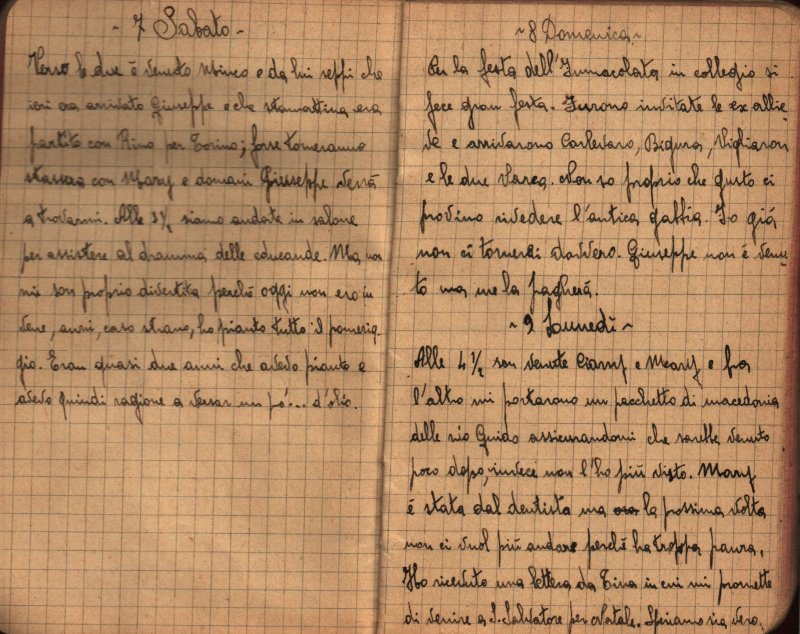 - 7 Sabato -
Verso le due è venuto e da lui seppi che
ieri era arrivato Giuseppe e che stamattina era
partito con Rino per Torino; forse torneranno
stassera con Mary e domani Giuseppe verrà
a trovarmi. Alle 3½ siamo andate in salone
per assistere al dramma delle educande. Ma non
mi son proprio divertita perchè oggi non ero in
vene, anzi, caso strano, ho pianto tutto il pomerig-
gio. Eran quasi due anni che avevo pianto e
avevo quindi ragione a versar un pó'... d'olio.
~ 8 Domenica ~
Per la festa dell'Immacolata in collegio si
fece gran festa. Furono invitate le ex allie-
ve e arrivarono Carlevaro, Bigura, Vigliaron
e le due Varca. Non so proprio che gusto ci
provino rivedere l'antica gabbia. Io già
non ci tornerei davvero. Giuseppe non è venu-
to ma me la pagherà.
~ 9 Lunnedì ~
Alle 4½ son venute e Mary e fra
l'altro mi portarono un pacchetto di macedonia
dello zio Guido assicurandomi che sarebbe venuto
poco dopo, invece non l'ho più visto. Mary
è stata dal dentista ma la prossima volta
non ci vuol più andare perchè ha troppa paura.
Ho ricevuto una lettera da Tina in cui mi promette
di venire a S. Salvatore per Natale. Speriamo sia vero.